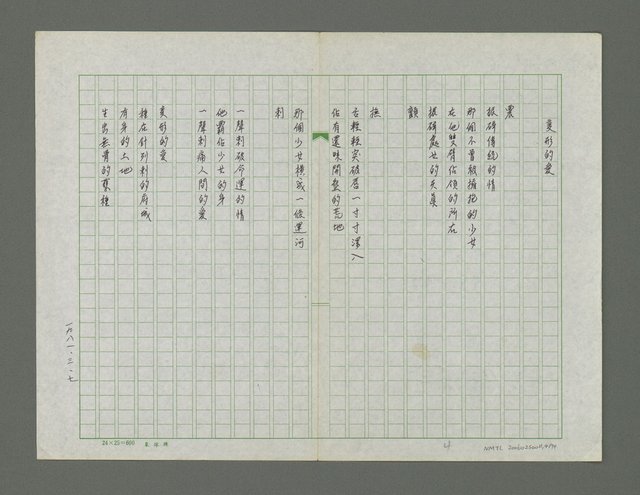 變形的愛
震
振碎傳統的情
那個不曾被擁抱的少女
在他雙臂佔領的所在
振碎處女的天真
顫
撫
舌輕輕突破唇一寸寸深入
佔有還昧開墾的荒地
那個少女横成一條運河
刺
一聲刺破命運的情
他霸佔少女的身
一聲刺痛人間的愛
變形的愛
種在針刺刺的府城
有身的土地
生出無骨的葉種
一九八一.三.七
24×25=600
4
NMTL